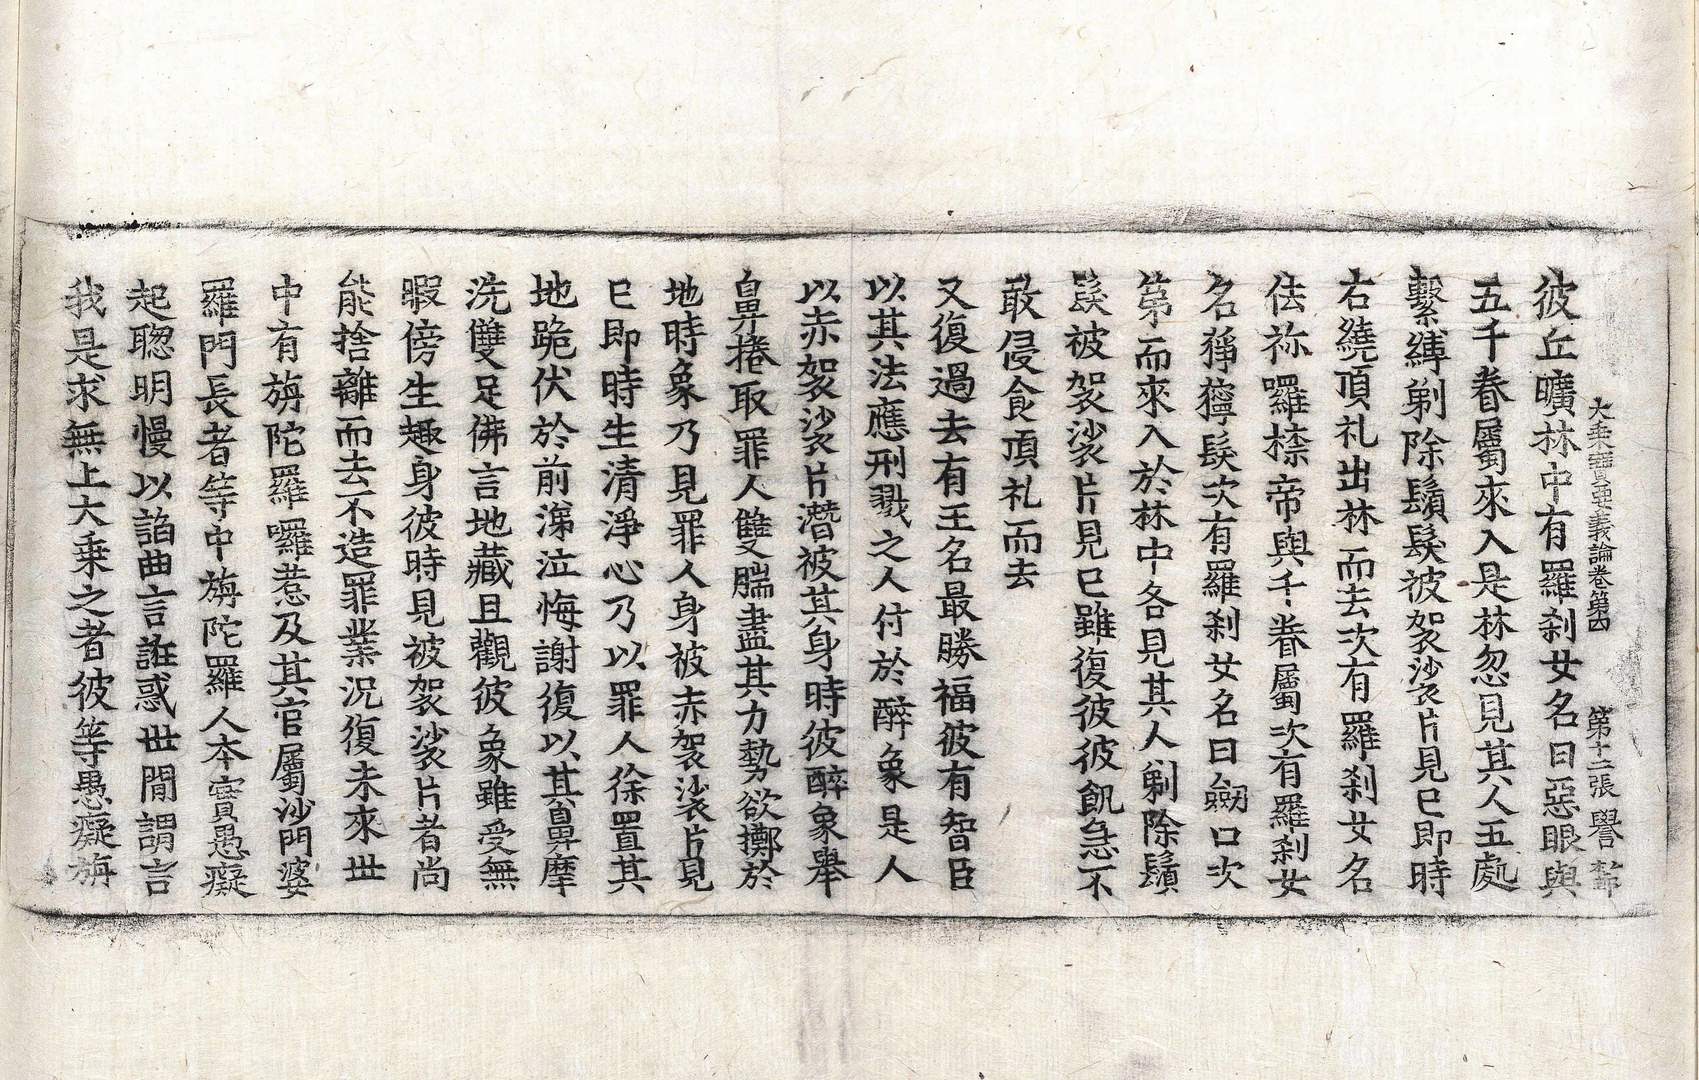 大乘寶要義論卷第四 第十二張 譽
彼丘曠林中有羅刹女名曰惡眼與
五千眷屬來入是林忽見其人五處
繫縛剃除鬚髮被袈裟片見已即時
右繞頂礼出林而去次有羅刹女名
佉祢囉㮈帝與千眷屬次有羅刹女
名猙獰髮次有羅刹女名曰劒口次
第而來入於林中各見其人剃除鬚
髮被袈裟片見已雖復彼彼飢急不
敢侵食頂礼而去
又復過去有王名最勝福彼有智臣
以其法應刑戮之人付於醉象是人
以赤袈裟片潛被其身時彼醉象舉
鼻捲取罪人雙腨盡其力勢欲擲於
地時象乃見罪人身被赤袈裟片見
已即時生清淨心乃以罪人徐置其
地跪伏於前涕泣悔謝復以其鼻摩
洗雙足佛言地藏且觀彼象雖受無
暇傍生趣身彼時見被袈裟片者尚
能捨離而去不造罪業況復未來世
中有旃陀羅囉惹及其官屬沙門婆
羅門長者等中旃陀羅人本實愚癡
起聰明慢以諂曲言誑惑世間謂言
我是求無上大乘之者彼等愚癡旃